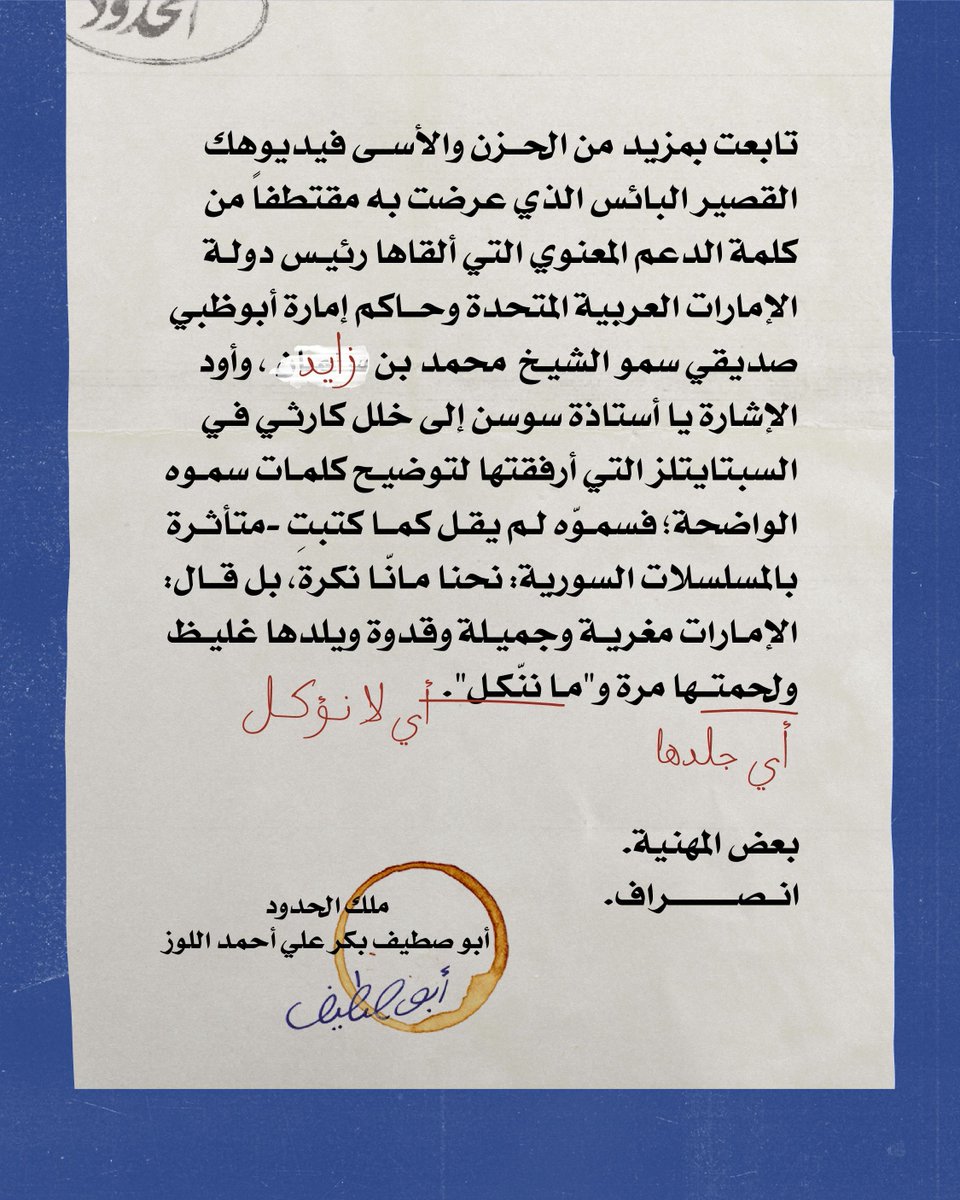 الحدود
تابعت بمزيد من الحزن والأسى فيديوهك
القصير البائس الذي عرضت به مقتطفاً من
كلمة الدعم المعنوي التي ألقاها رئيس دولة
الإمارات العربية المتحدة وحاكم إمارة أبوظبي
صديقي سمو الشيخ محمد بن زايد، وأود
الإشارة يا أستاذة سوسن إلى خلل كارثي في
السبتايتلز التي أرفقتها لتوضيح كلمات سموه
الواضحة؛ فسموّه لم يقل كما كتبتِ -متأثرة
بالمسلسلات السورية: نحنا مانّا نكرة، بل قال:
الإمارات مغرية وجميلة وقدوة ويلدها غليظ
ولحمتها مرة و"ما ننّكل".
أي لا نؤكل
أي جلدها
بعض المهنية.
انصراف.
ملك الحدود
أبو صطيف بكر علي أحمد اللوز
أبو صطيف